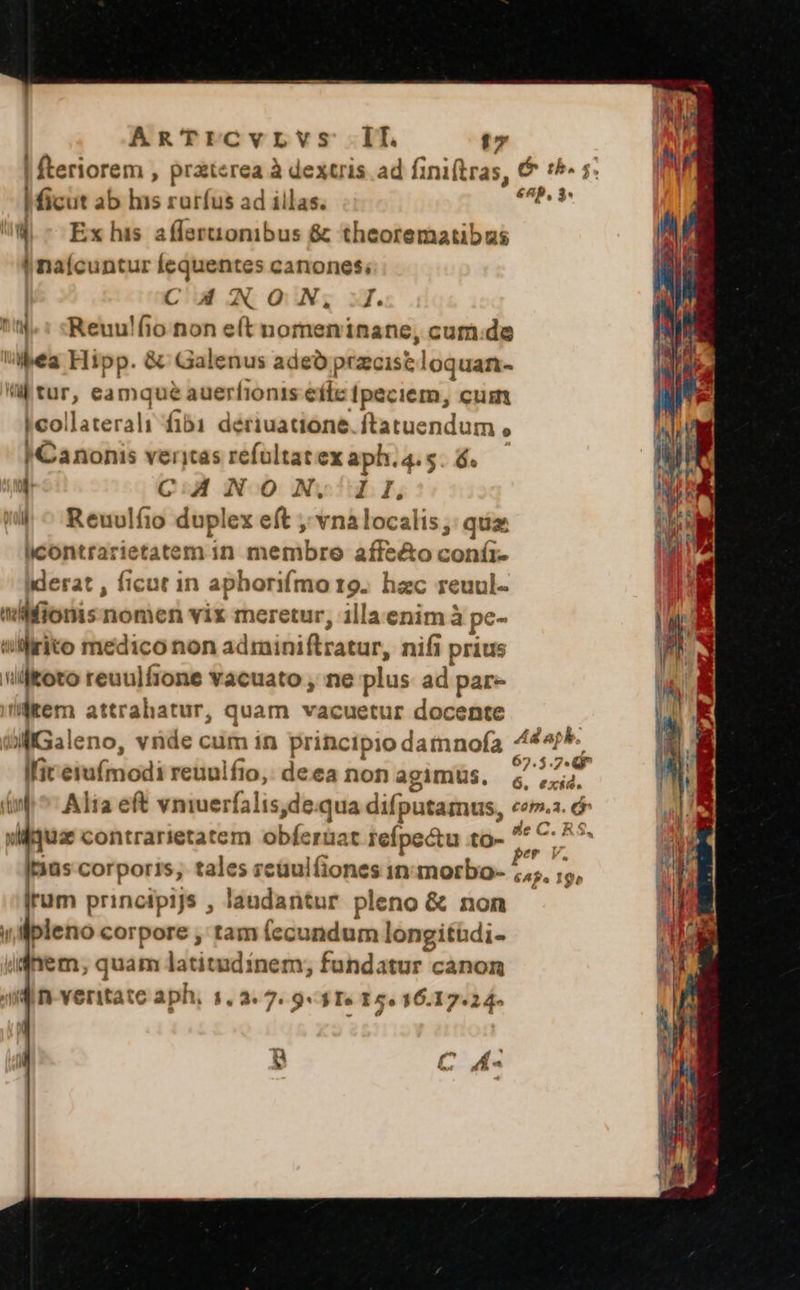 ARTICVLVS II. 17
ſteriorem, præterea à dextris ad ſiniſtras,
ſicut ab his rurſus ad illas.
& th. 5.
cap. 3.
Ex his aſſertionibus & theorematibus
naſcuntur ſequentes canones.
CANON. I.
Reuulſio non eſt nomen inane, cum de
ea Hipp. & Galenus adeò præcisè loquan-
tur, eamquè auerſionis eſſe ſpeciem, cum
collaterali ſibi deriuatione. ſtatuendum.
Canonis veritas reſultat ex aph. 4. 5. 6.
CANON. II.
Reuulſio duplex eſt, vna localis, quæ
contrarietatem in membro affecto conſi-
derat, ſicut in aphoriſmo 19. hæc reuul-
ſionis nomen vix meretur, illa enim à pe-
rito medico non adminiſtratur, niſi prius
toto reuulſione vacuato, ne plus ad par-
tem attrahatur, quam vacuetur docente
Galeno, vnde cùm in principio damnoſa
ſit eiuſmodi reuulſio, de ea non agimus.
Alia eſt vniuerſalis, de qua diſputamus,
quæ contrarietatem obſeruat reſpectu to-
tius corporis, tales reuulſiones in morbo-
rum principijs, laudantur pleno & non
pleno corpore, tam ſecundum longitudi-
nem, quam latitudinem, fundatur canon
in veritate aph. 1. 2. 7. 9. 11. 15. 16. 17. 24.
Ad aph.
67. 5. 7. &
6. exid.
com. 2. &
de C. RS.
per V.
cap. 19.
B C A-